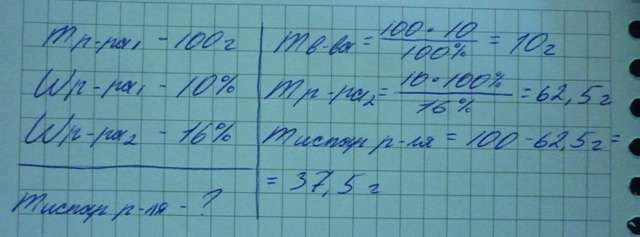 mр-ра₁ - 100г
Wр-ра₁ - 10%
Wр-ра₂ - 16%
mиспар р-ля - ?
mв-ва = 100 · 10 / 100% = 10г
mр-ра₂ = 10 · 100% / 16% = 62,5г
mиспар р-ля = 100 - 62,5г =
= 37,5г